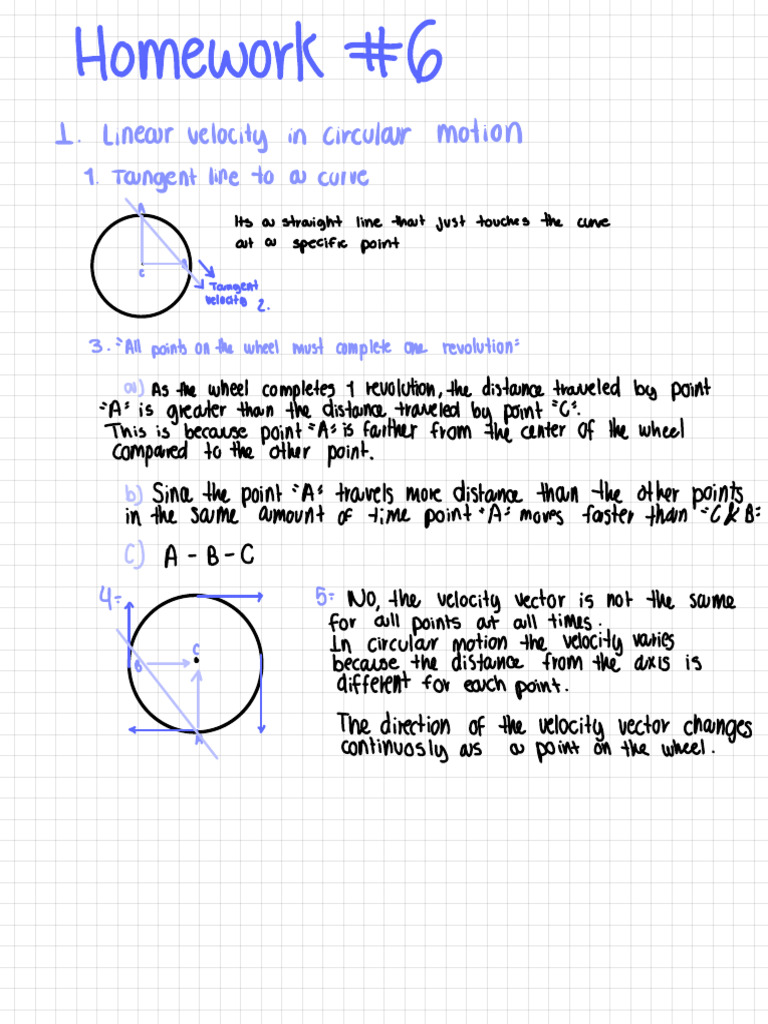 Homework #6
1. Linear velocity in circular motion
1. Tangent line to a curve
A
Its a straight line that just touches the curve
at a specific point
C
Tangent
velocity 2.
3. "All points on the wheel must complete one revolution"
a) As the wheel completes 1 revolution, the distance traveled by point
"A" is greater than the distance traveled by point "C".
This is because point "A" is farther from the center of the wheel
compared to the other point.
b) Since the point "A" travels more distance than the other points
in the same amount of time point "A" moves faster than "C & B"
C) A - B - C
4=
5= No, the velocity vector is not the same
for all points at all times.
In circular motion the velocity varies
because the distance from the axis is
different for each point.
C
B
A
The direction of the velocity vector changes
continuosly as a point on the wheel.